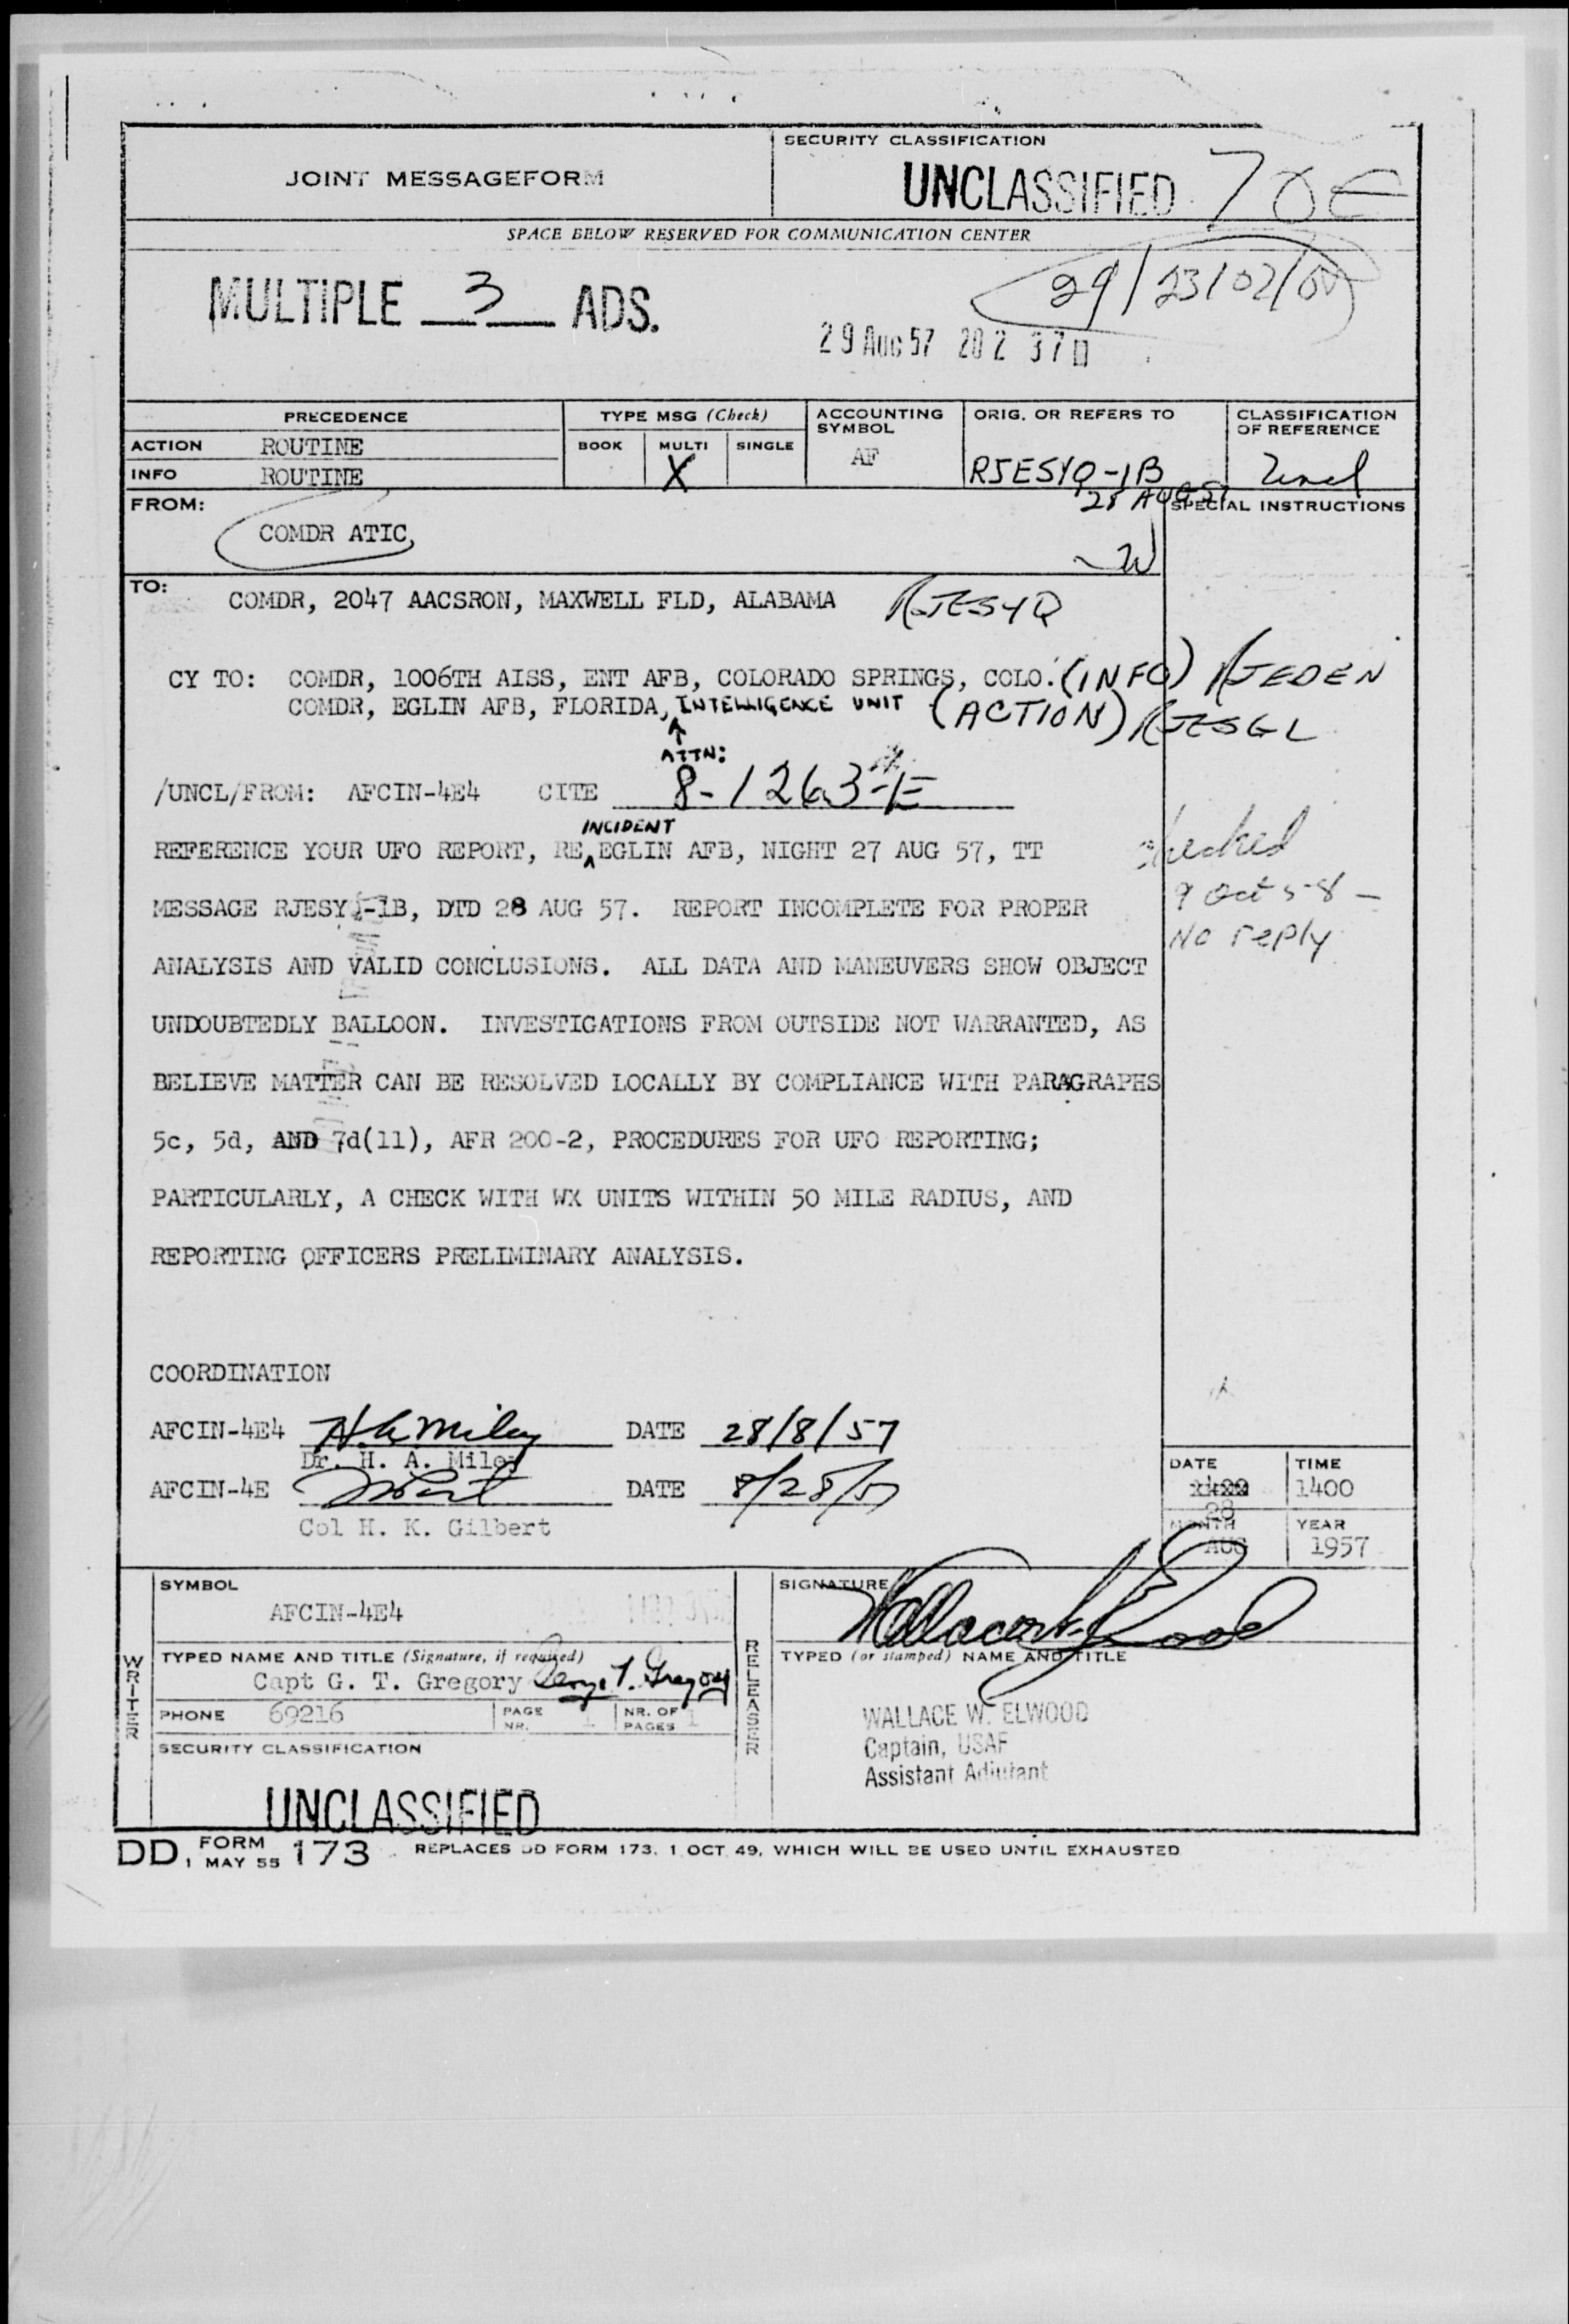 JOINT MESSAGEFORM
SECURITY CLASSIFICATION
UNCLASSIFIED
SPACE BELOW RESERVED FOR COMMUNICATION CENTER
MULTIPLE 3 ADS.
29 AUG 57 20 2 37
PRECEDENCE
TYPE MSG (Check)
ACCOUNTING SYMBOL
ORIG. OR REFERS TO
CLASSIFICATION OF REFERENCE
ACTION ROUTINE
BOOK MULTI SINGLE
AF
INFO ROUTINE
X
RJESYQ-1B
28 AUG 57
Uncl
FROM:
SPECIAL INSTRUCTIONS
COMDR ATIC
TO:
COMDR, 2047 AACSRON, MAXWELL FLD, ALABAMA RJESYQ
CY TO: COMDR, 1006TH AISS, ENT AFB, COLORADO SPRINGS, COLO. (INFO) RJEDEN
COMDR, EGLIN AFB, FLORIDA, INTELLIGENCE UNIT (ACTION) RJESGL
ATTN:
/UNCL/FROM: AFCIN-4E4 CITE 8-1263-E
INCIDENT
REFERENCE YOUR UFO REPORT, RE EGLIN AFB, NIGHT 27 AUG 57, TT
MESSAGE RJESYQ-1B, DTD 28 AUG 57. REPORT INCOMPLETE FOR PROPER
ANALYSIS AND VALID CONCLUSIONS. ALL DATA AND MANEUVERS SHOW OBJECT
UNDOUBTEDLY BALLOON. INVESTIGATIONS FROM OUTSIDE NOT WARRANTED, AS
BELIEVE MATTER CAN BE RESOLVED LOCALLY BY COMPLIANCE WITH PARAGRAPHS
5c, 5d, AND 7d(11), AFR 200-2, PROCEDURES FOR UFO REPORTING;
PARTICULARLY, A CHECK WITH WX UNITS WITHIN 50 MILE RADIUS, AND
REPORTING OFFICERS PRELIMINARY ANALYSIS.
checked
9 Oct 58 -
No reply
COORDINATION
AFCIN-4E4 H A Miley DATE 28/8/57
Dr. H. A. Miley
AFCIN-4E DATE 8/28/57
Col H. K. Gilbert
DATE
28
TIME
1400
MONTH
AUG
YEAR
1957
WRITER
SYMBOL
AFCIN-4E4
TYPED NAME AND TITLE (Signature, if required)
Capt G. T. Gregory George T. Gregory
PHONE 69216
PAGE NR. 1
NR. OF PAGES 1
SECURITY CLASSIFICATION
UNCLASSIFIED
RELEASER
SIGNATURE
Wallace W. Elwood
TYPED (or stamped) NAME AND TITLE
WALLACE W. ELWOOD
Captain, USAF
Assistant Adjutant
DD, FORM 1 MAY 55 173 REPLACES DD FORM 173, 1 OCT 49, WHICH WILL BE USED UNTIL EXHAUSTED